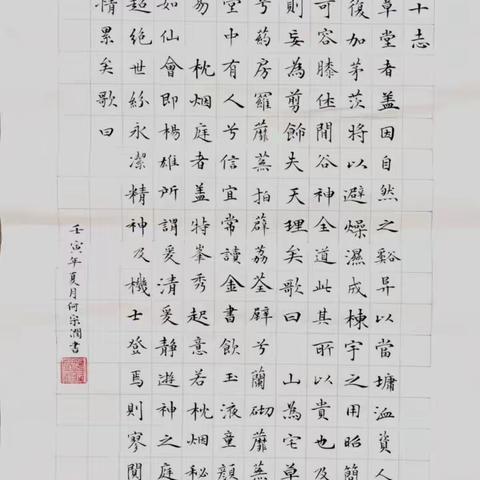 十志
草堂者蓋因自然之谿阜以當墉洫資人
復加茅茨將以避燥濕成棟宇之用昭簡
可容膝休閒谷神全道此其所以貴也及
則妄為剪飾失天理矣歌曰 山為宅草
兮葯房羅蘼蕪拍薜荔荃壁兮蘭砌蘼蕪
堂中有人兮信宜常讀金書飲玉液童顏
易 枕烟庭者蓋特峯秀起意若枕烟秘
如仙會即楊雄所謂爰清爰靜遊神之庭
超絕世紛永潔精神及機士登焉則寥闃
情累矣歌曰
壬寅年夏月何宗潤書